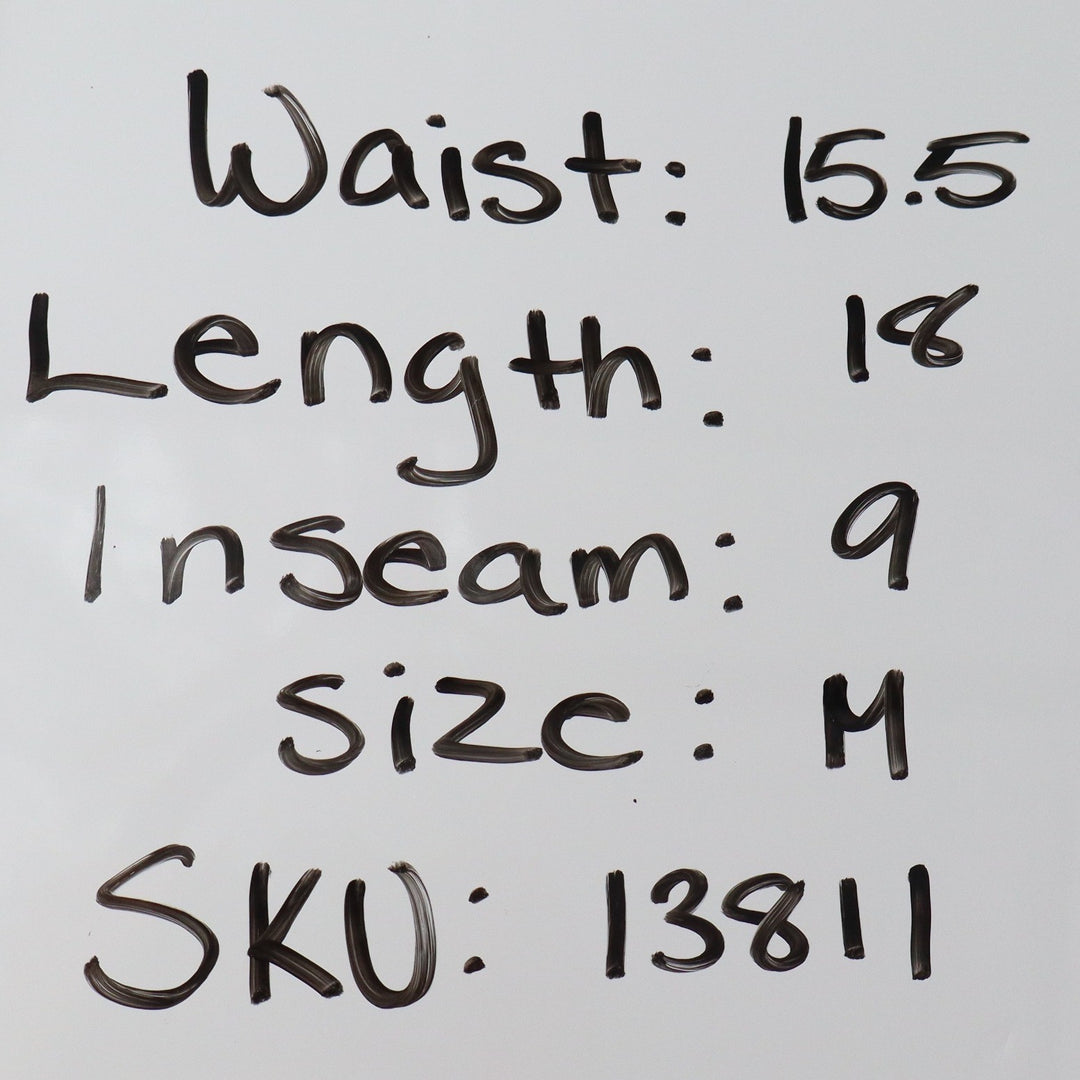 Waist: 15.5
Length: 18
Inseam: 9
Size: M
SKU: 13811